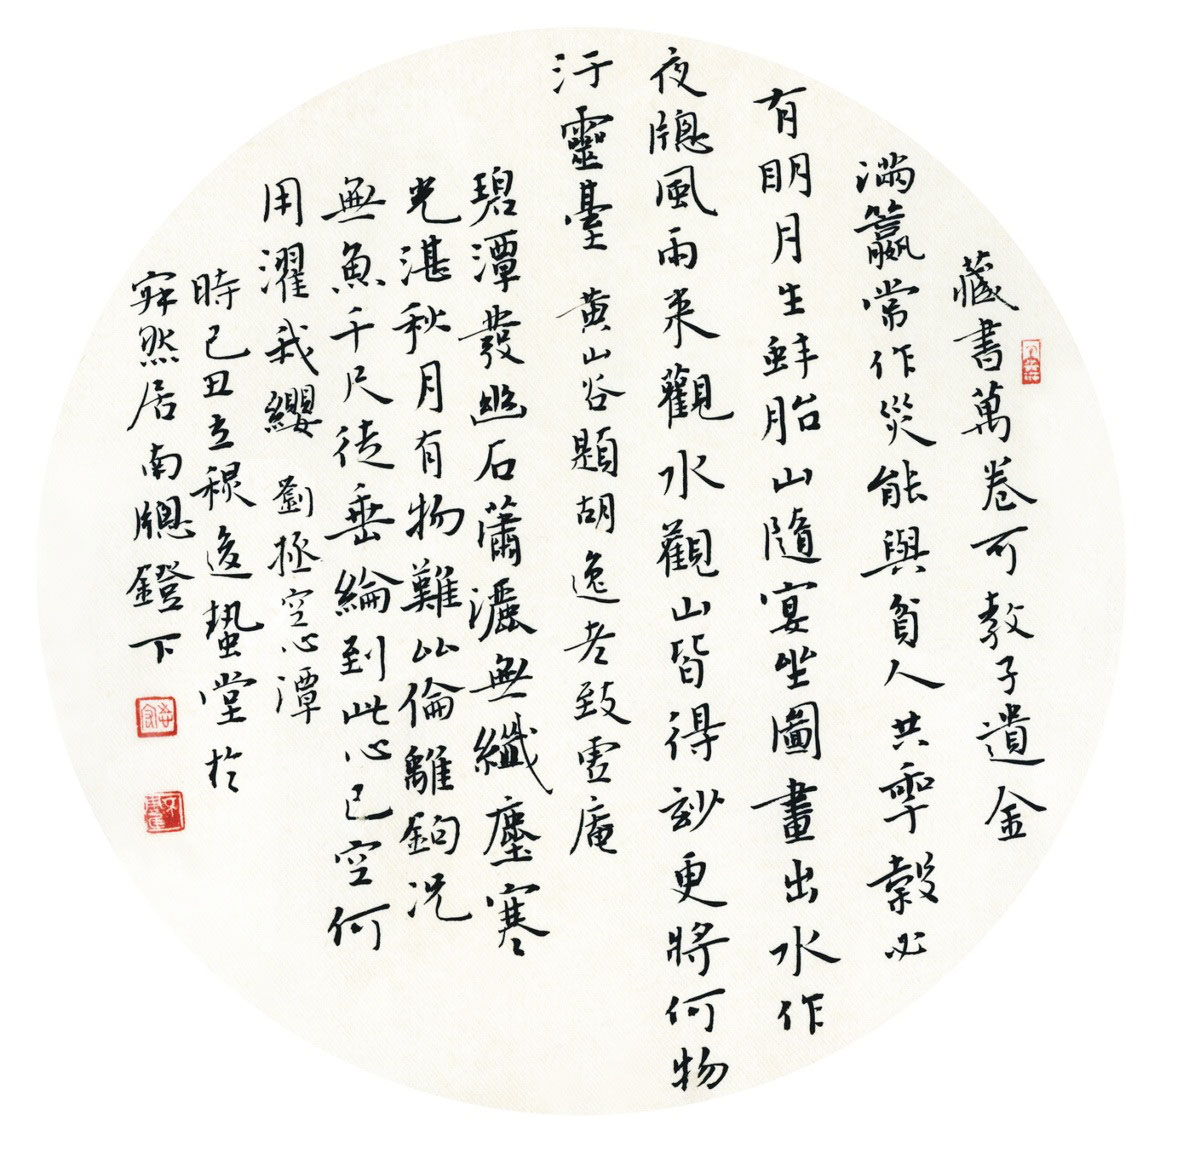 藏書萬卷可教子遺金
滿籯常作災能與貧人共年穀必
有明月生蚌胎山隨宴坐圖畫出水作
夜牕風雨來觀水觀山皆得妙更將何物
汙靈臺 黃山谷題胡逸老致虛庵
碧潭發幽石蕭灑無纖塵寒
光湛秋月有物難比倫離鉤況
無魚千尺徒垂綸到此心已空何
用濯我纓 劉拯空心潭
時己丑立穐後蟄堂於
寂然居南牕鐙下